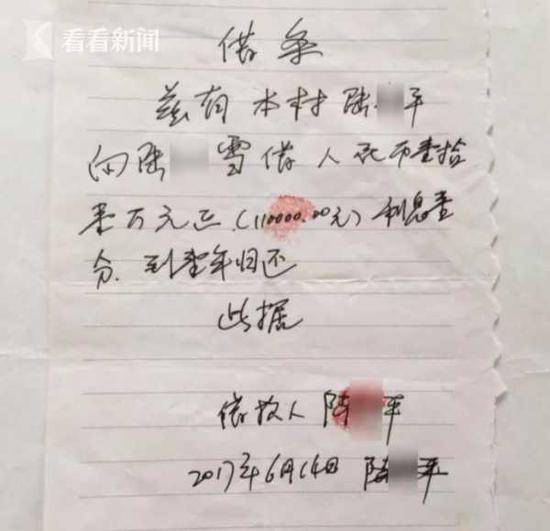 看看新闻
借条
兹有本村陆平
向陆雪借人民币壹拾
壹万元正.(110000.00元)利息壹
分.到壹年归还
此据
借款人 陆平
2017年6月14日 陆平